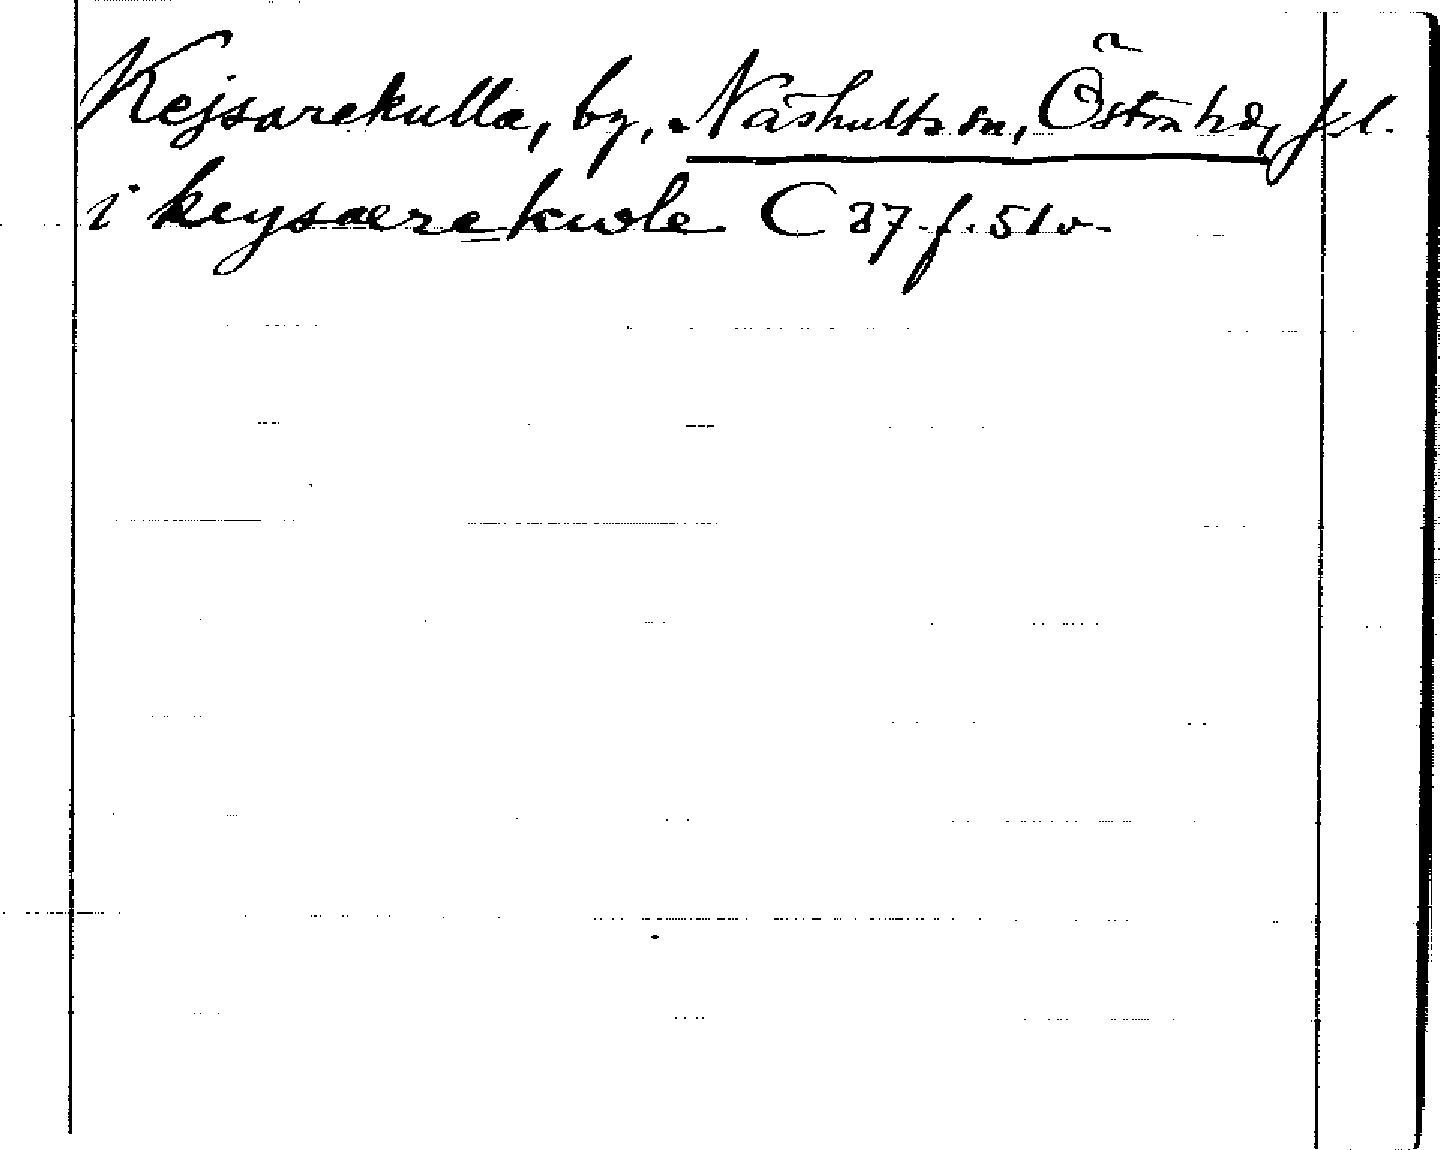 Kejsarekulla, by, Näshults sn, Östra hd, Jkl.
i keysærekwle C 37 f. 51v